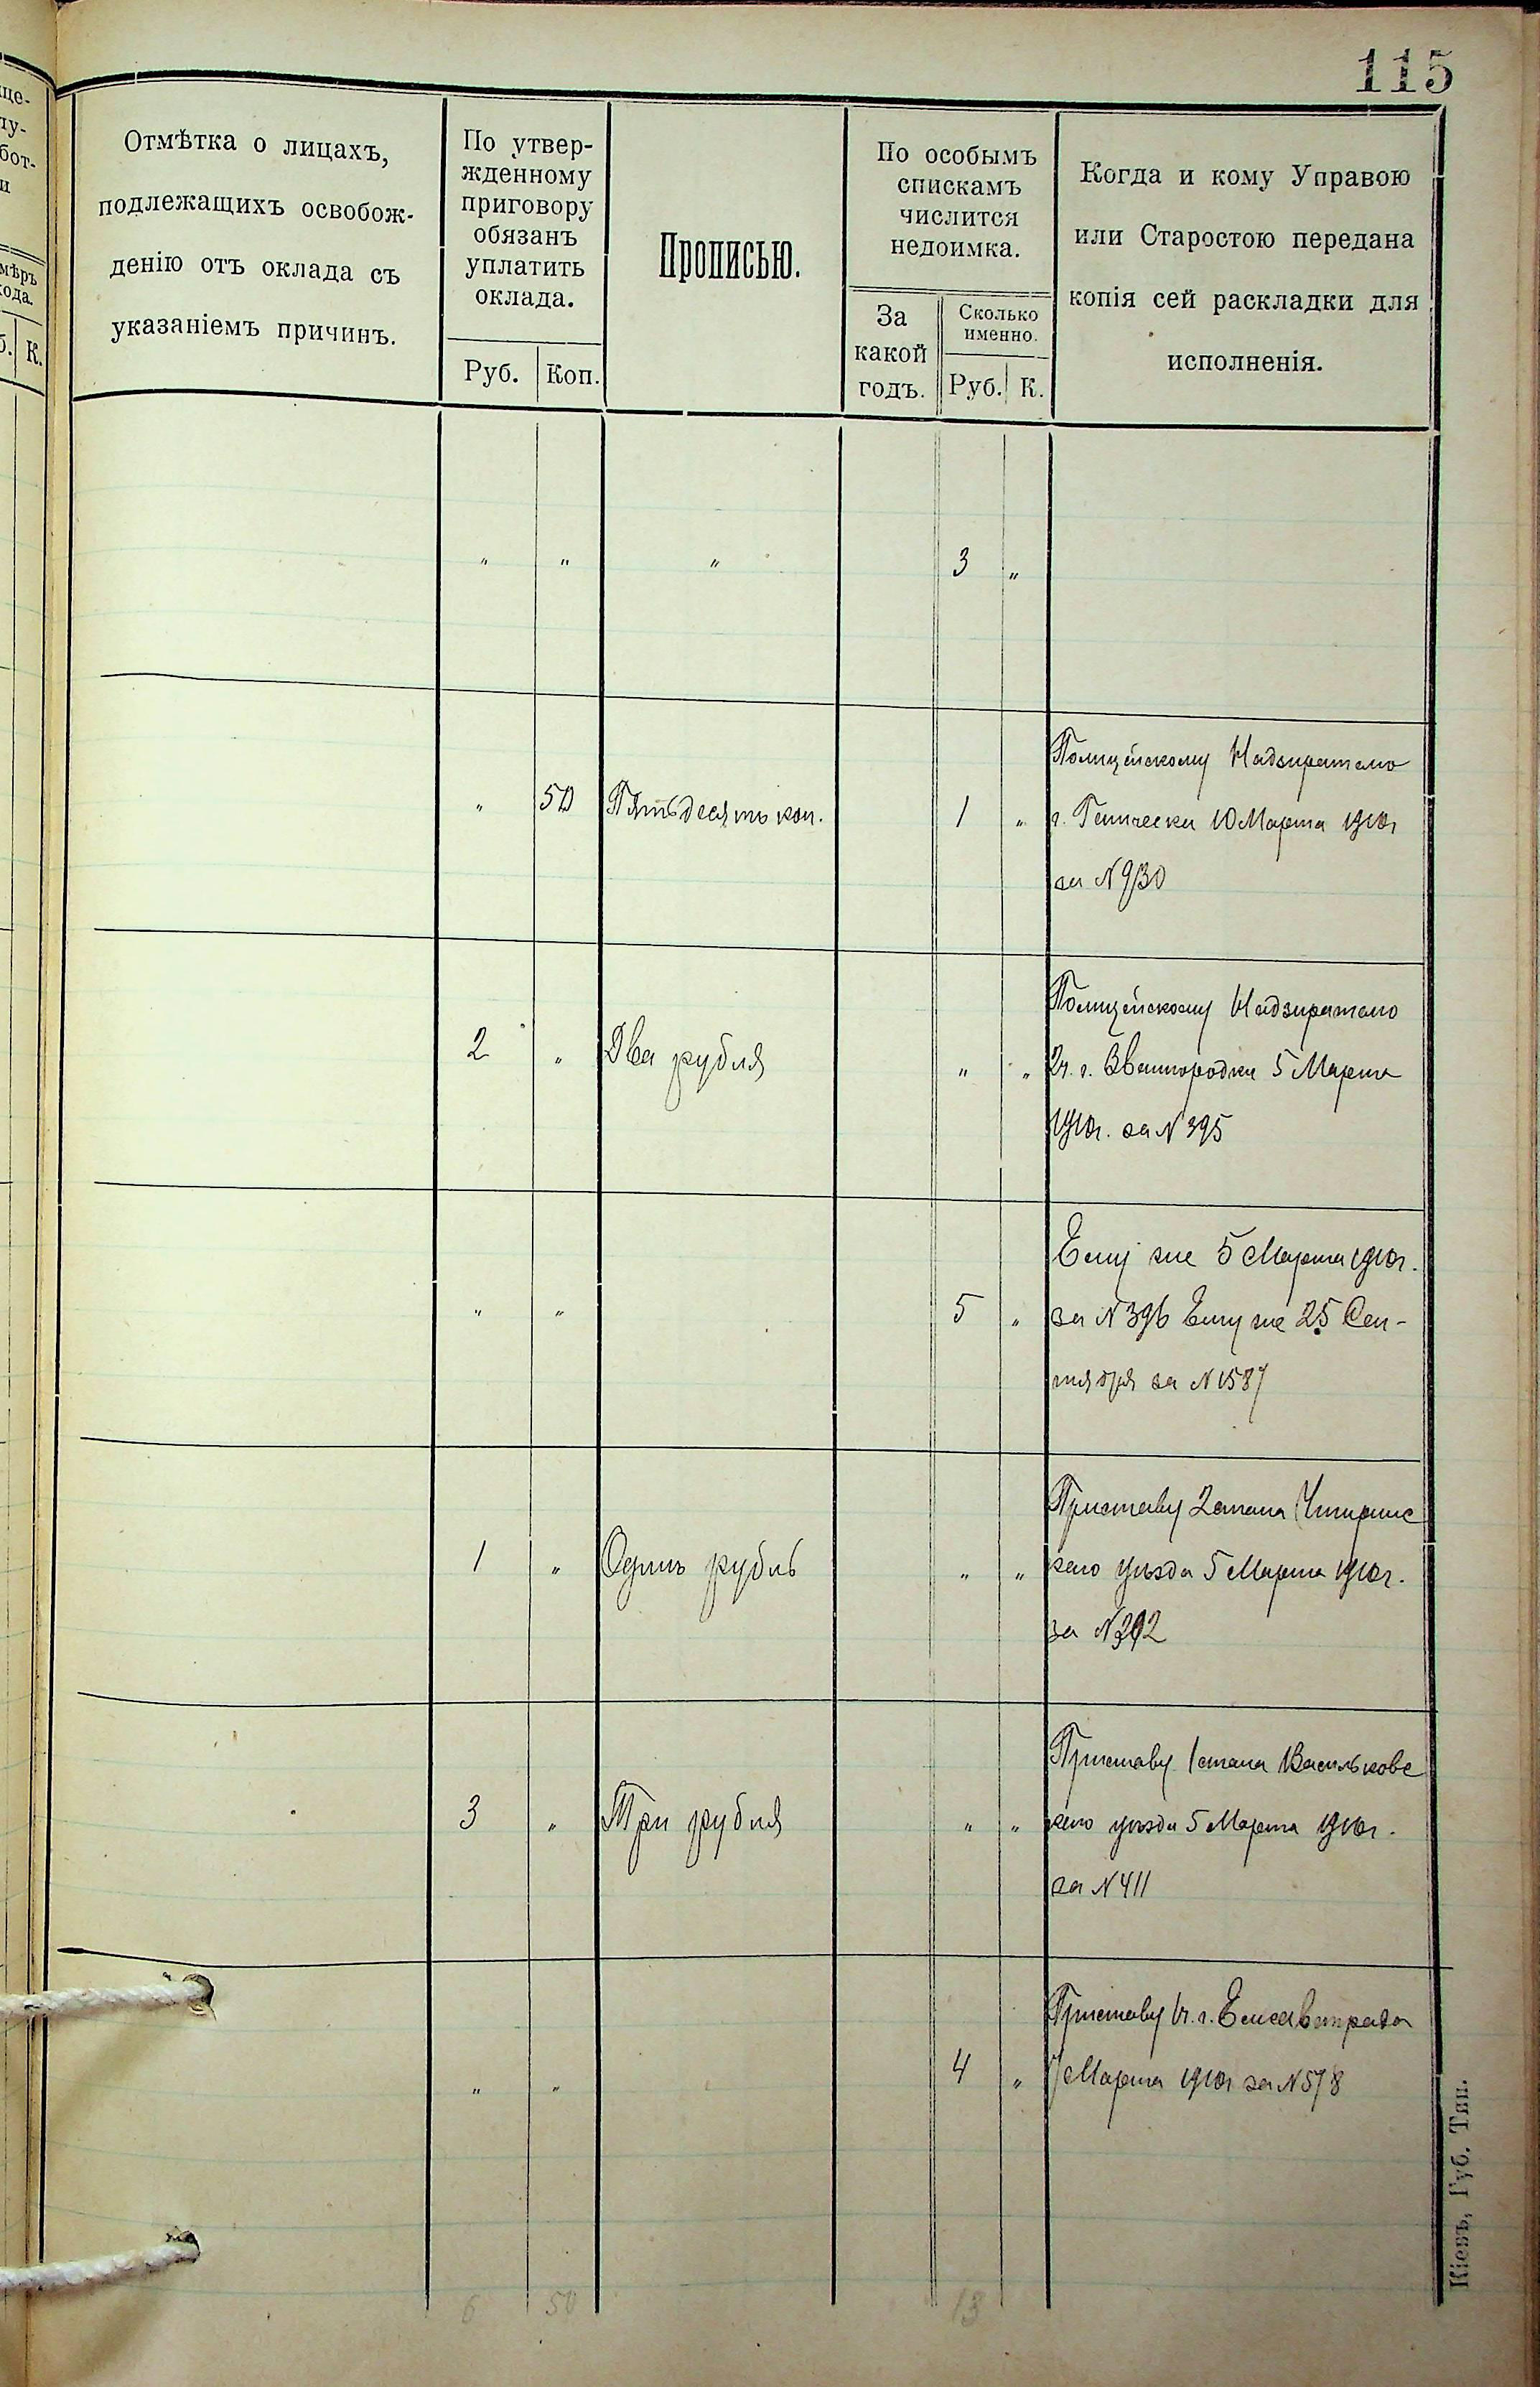 115
ще-
лу-
бот-
и
мѣръ
хода.
б. К.
Отмѣтка о лицахъ,
подлежащихъ освобож-
денію отъ оклада съ
указаніемъ причинъ.
По утвер-
жденному
приговору
обязанъ
уплатить
оклада.
Руб. Коп.
Прописью.
По особымъ
спискамъ
числится
недоимка.
За
какой
годъ.
Сколько
именно.
Руб. К.
Когда и кому Управою
или Старостою передана
копія сей раскладки для
исполненія.
" " " 3 "
" 50 Пятьдесятъ коп. 1 "
Полицейскому Надзирателю
г. Геническа 10 Марта 1910г
за N 930
2 " Два рубля " "
Полицейскому Надзирателю
2ч. г. Звенигородки 5 Марта
1910г. за N 395
" " 5 "
Ему же 5 Марта 1910г.
за N 396 Ему же 25 Сен-
тября за N 1587
1 " Одинъ рубль " "
Приставу 2 стана Чигиринс
каго уѣзда 5 Марта 1910г.
за N
3 " Три рубля " "
Приставу 1 стана Васильковс
каго уѣзда 5 Марта 1910г.
за N 411
" " 4 "
Приставу 1ч. г. Елисаветграда
7 Марта 1910г за N 578
6 50 13
Кіевъ, Губ. Тип.